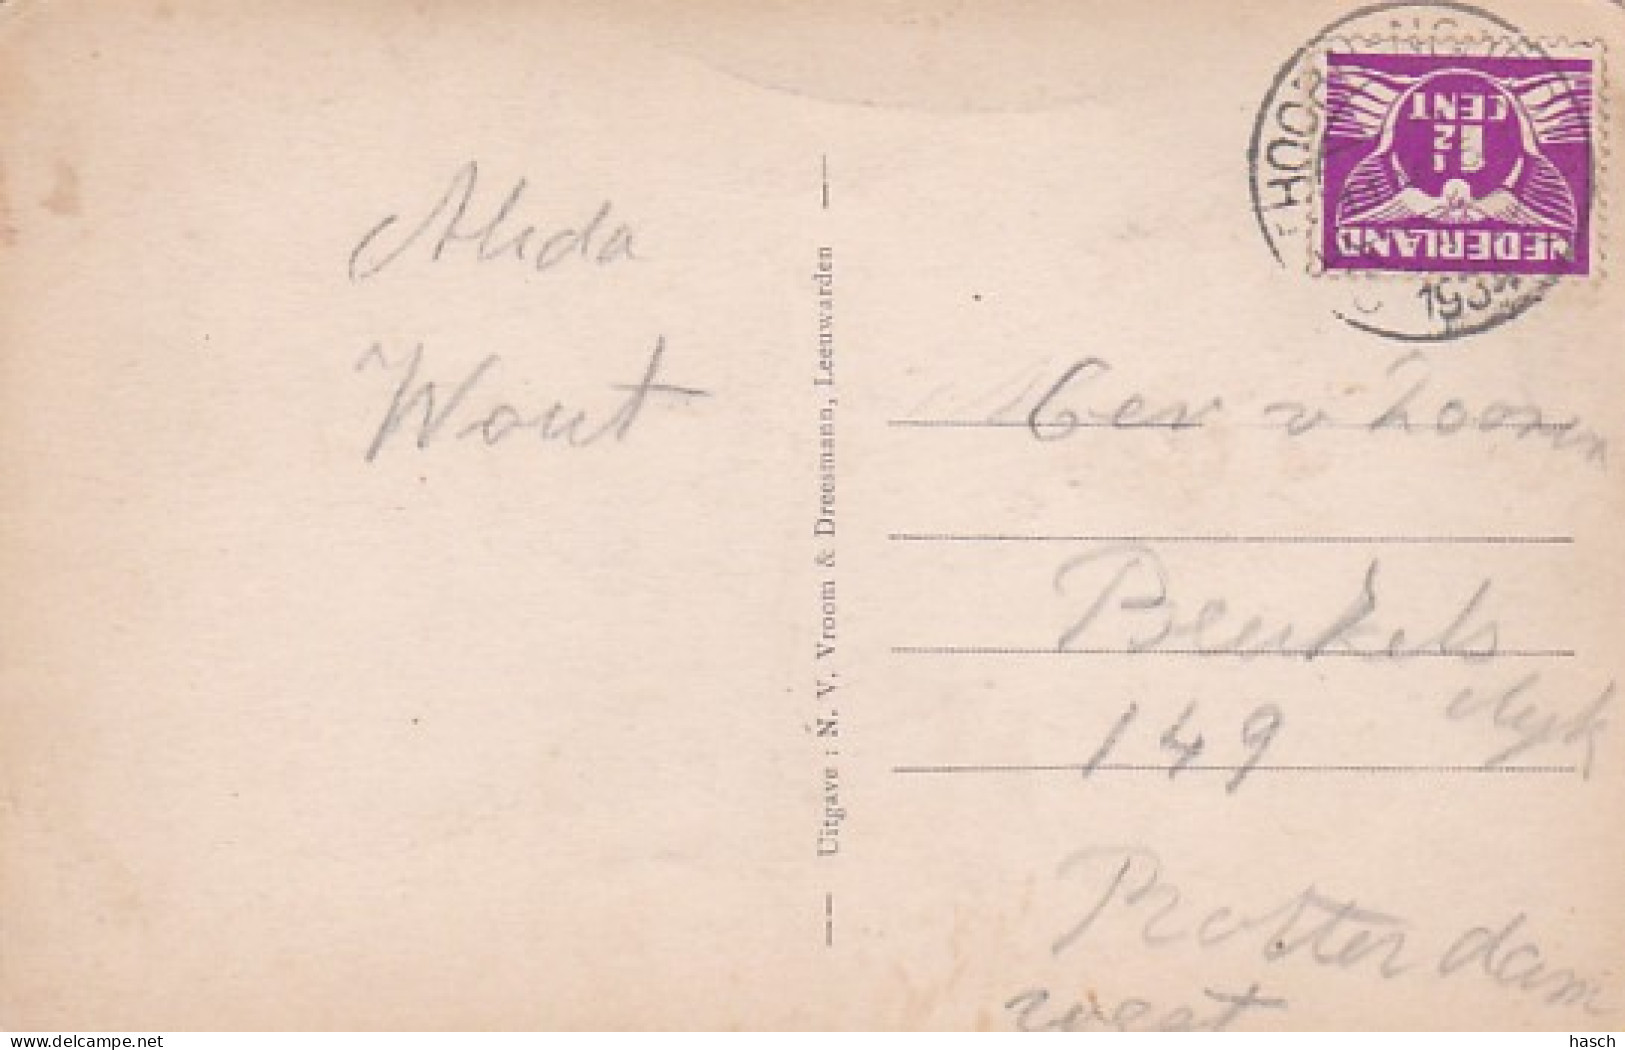 Alida
Wout
Uitgave : N. V. Vroom & Dreesmann, Leeuwarden
NEDERLAND
1½
CENT
HOOR
193
Ger v Hooren
Beukels
dijk
149
Rotterdam
west
hasch